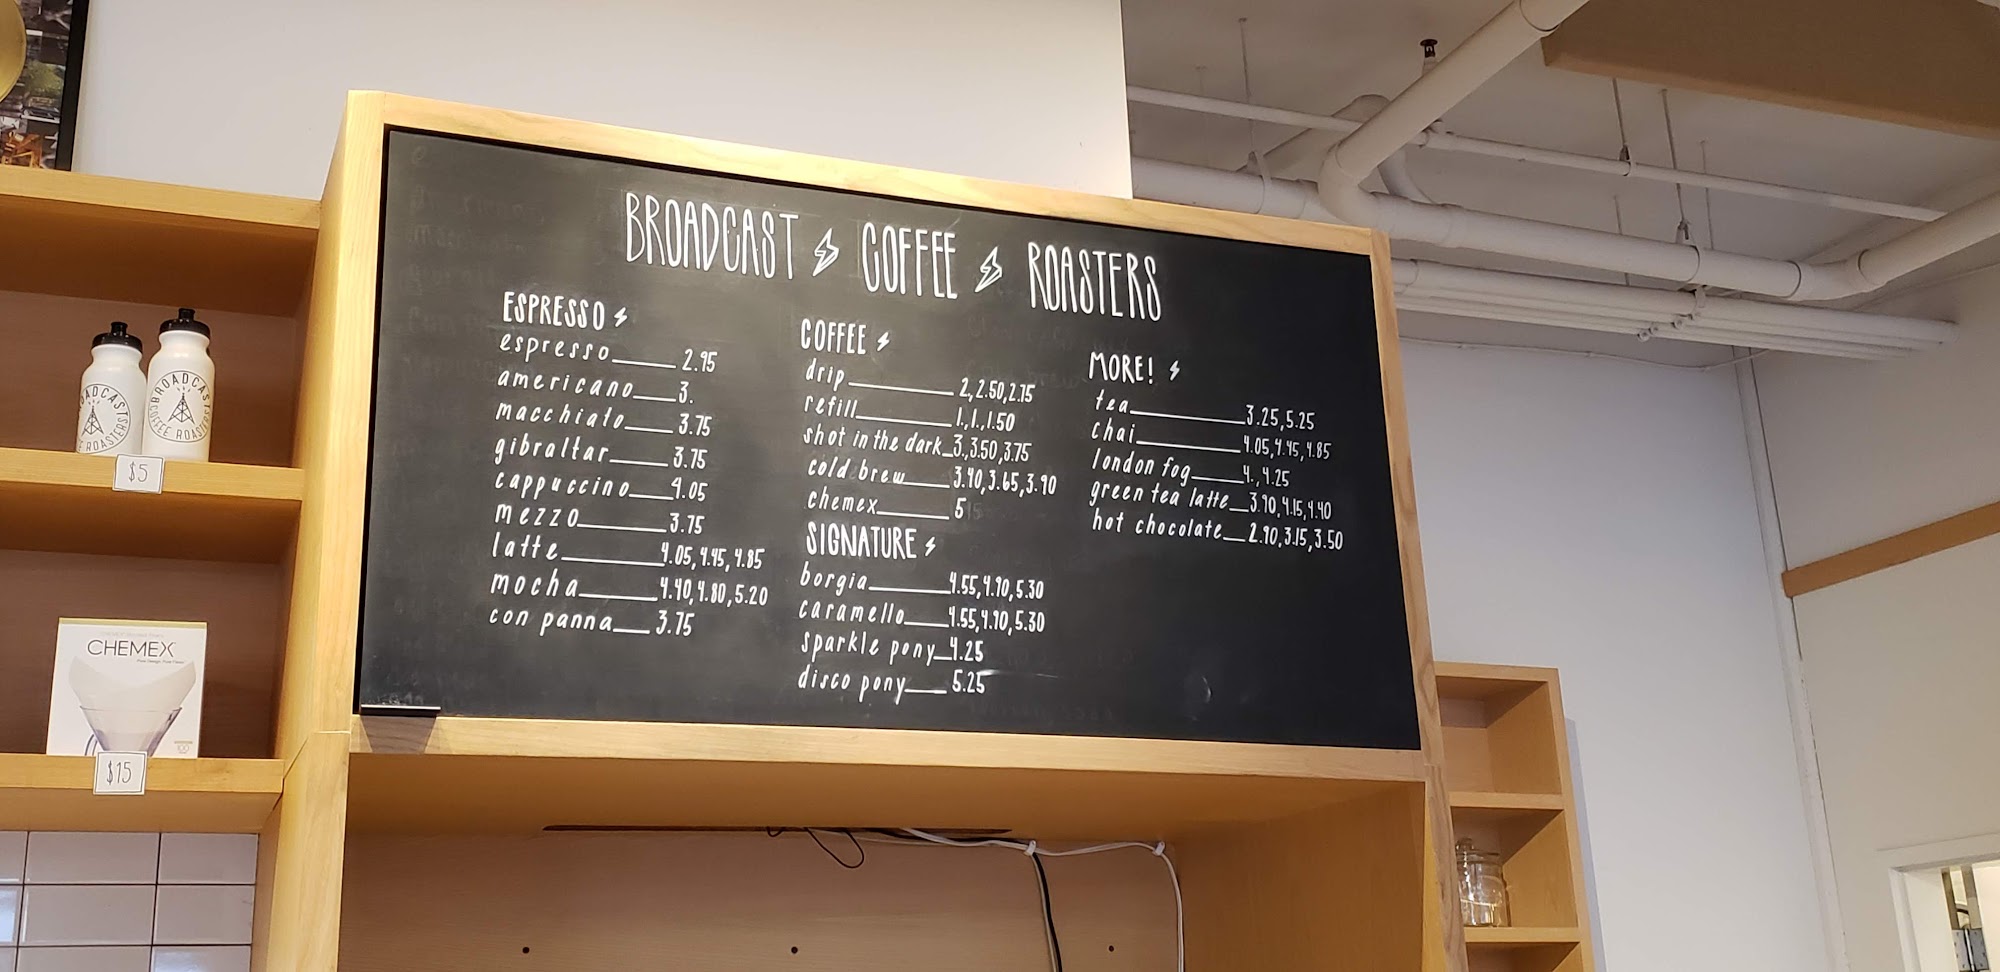 BROADCAST COFFEE ROASTERS
ESPRESSO
espresso 2.95
americano 3.
macchiato 3.75
gibraltar 3.75
cappuccino 4.05
mezzo 3.75
latte 4.05, 4.45, 4.85
mocha 4.40, 4.80, 5.20
con panna 3.75
COFFEE
drip 2, 2.50, 2.75
refill 1., 1., 1.50
shot in the dark 3., 3.50, 3.75
cold brew 3.40, 3.65, 3.90
chemex 5
SIGNATURE
borgia 4.55, 4.90, 5.30
caramello 4.55, 4.90, 5.30
sparkle pony 4.25
disco pony 5.25
MORE!
tea 3.25, 5.25
chai 4.05, 4.45, 4.85
london fog 4., 4.25
green tea latte 3.90, 4.15, 4.40
hot chocolate 2.90, 3.15, 3.50
BROADCAST
COFFEE ROASTERS
$5
CHEMEX
$15